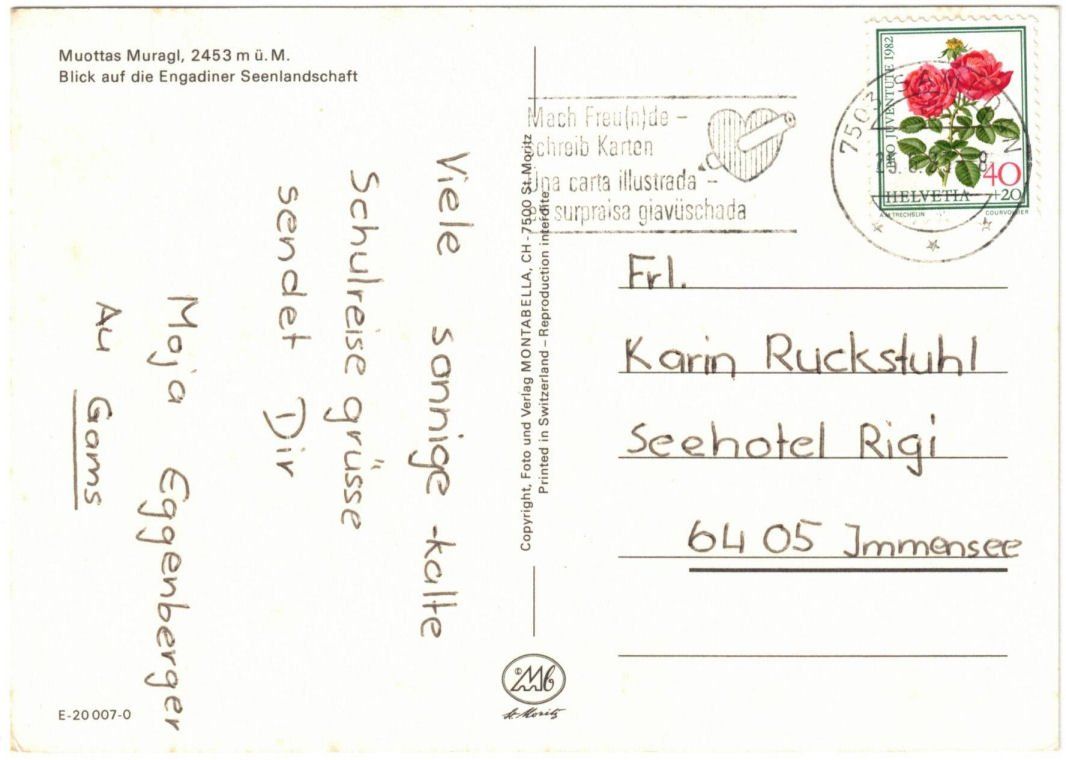 Muottas Muragl, 2453 m ü. M.
Blick auf die Engadiner Seenlandschaft
Viele sonnige-kalte
Schulreisegrüsse
sendet Dir
Maja Eggenberger
Au
Gams
E-20 007-0
Copyright, Foto und Verlag MONTABELLA, CH - 7500 St. Moritz
Printed in Switzerland – Reproduction interdite
Mb
St. Moritz
Mach Freu(n)de –
schreib Karten
Una carta illustrada –
surpraisa giavüschada
7503
PRO JUVENTUTE 1982
40
+20
HELVETIA
A.M. TRECHSLIN
COURVOISIER
Frl.
Karin Ruckstuhl
Seehotel Rigi
6405 Immensee